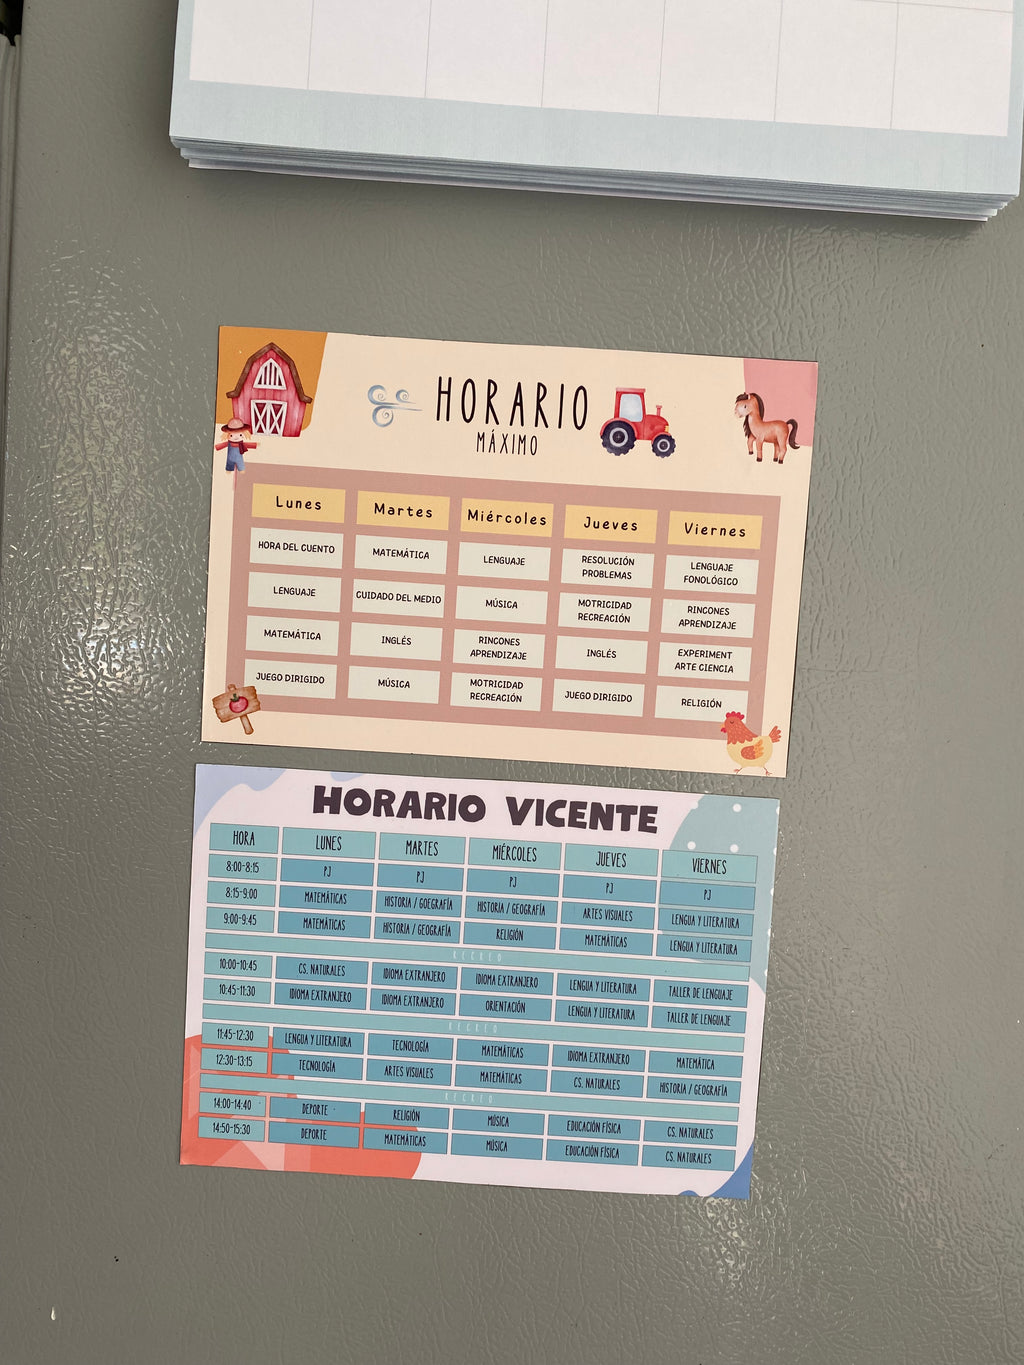 HORARIO
MÁXIMO
Lunes Martes Miércoles Jueves Viernes
HORA DEL CUENTO MATEMÁTICA LENGUAJE RESOLUCIÓN PROBLEMAS LENGUAJE FONOLÓGICO
LENGUAJE CUIDADO DEL MEDIO MÚSICA MOTRICIDAD RECREACIÓN RINCONES APRENDIZAJE
MATEMÁTICA INGLÉS RINCONES APRENDIZAJE INGLÉS EXPERIMENT ARTE CIENCIA
JUEGO DIRIGIDO MÚSICA MOTRICIDAD RECREACIÓN JUEGO DIRIGIDO RELIGIÓN
HORARIO VICENTE
HORA LUNES MARTES MIÉRCOLES JUEVES VIERNES
8:00-8:15 PJ PJ PJ PJ PJ
8:15-9:00 MATEMÁTICAS HISTORIA / GOEGRAFÍA HISTORIA / GEOGRAFÍA ARTES VISUALES LENGUA Y LITERATURA
9:00-9:45 MATEMÁTICAS HISTORIA / GEOGRAFÍA RELIGIÓN MATEMÁTICAS LENGUA Y LITERATURA
RECREO
10:00-10:45 CS. NATURALES IDIOMA EXTRANJERO IDIOMA EXTRANJERO LENGUA Y LITERATURA TALLER DE LENGUAJE
10:45-11:30 IDIOMA EXTRANJERO IDIOMA EXTRANJERO ORIENTACIÓN LENGUA Y LITERATURA TALLER DE LENGUAJE
RECREO
11:45-12:30 LENGUA Y LITERATURA TECNOLOGÍA MATEMÁTICAS IDIOMA EXTRANJERO MATEMÁTICA
12:30-13:15 TECNOLOGÍA ARTES VISUALES MATEMÁTICAS CS. NATURALES HISTORIA / GEOGRAFÍA
RECREO
14:00-14:40 DEPORTE RELIGIÓN MÚSICA EDUCACIÓN FÍSICA CS. NATURALES
14:50-15:30 DEPORTE MATEMÁTICAS MÚSICA EDUCACIÓN FÍSICA CS. NATURALES